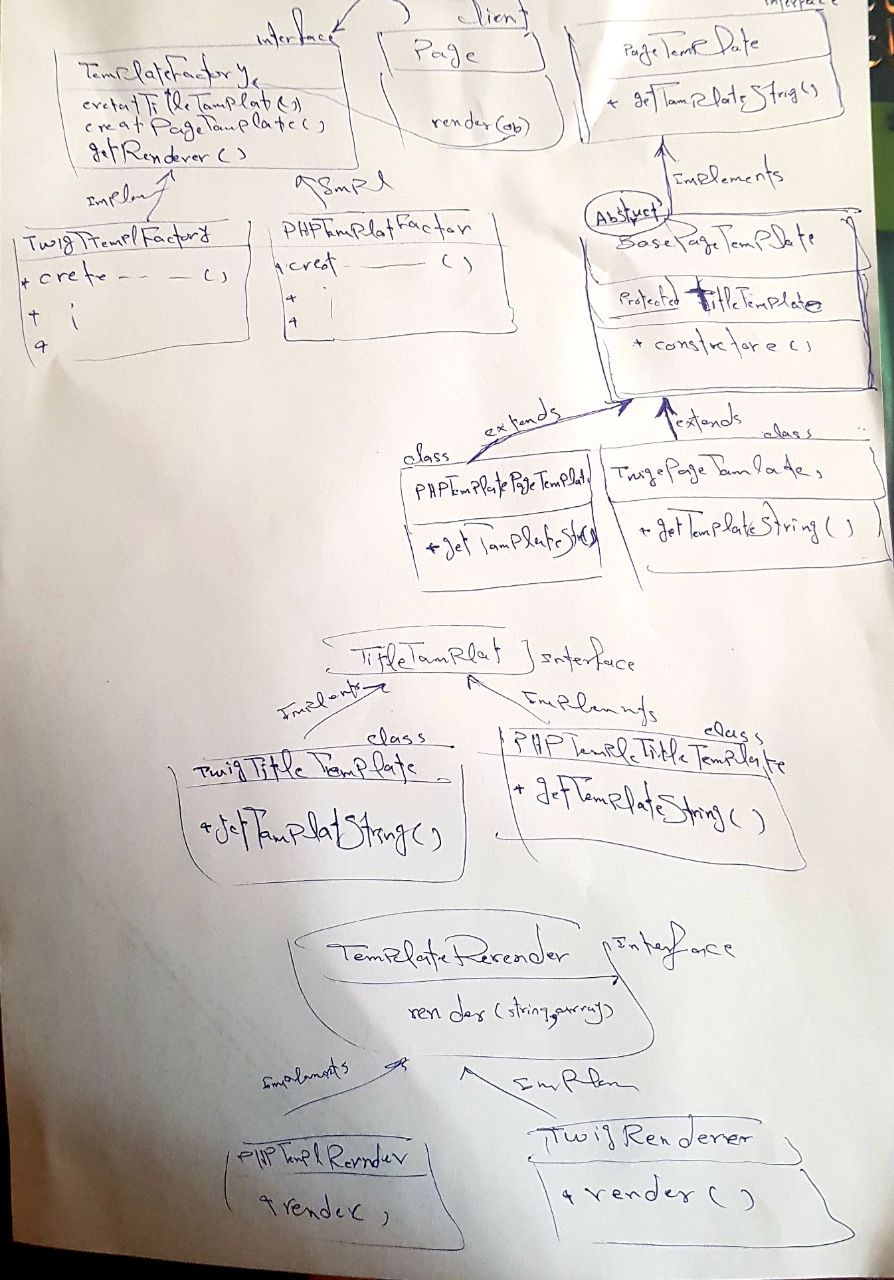 interface
TemplateFactory
creatTitleTamplat()
creatPageTamplate()
getRenderer()
client
Page
render(ob)
interface
PageTemplate
+ getTamplateStrig()
Implements
Implem
Impl
TwigTemplFactory
+ crete - - - - ()
+
+
PHPTemplatFactor
+ creat ——— ()
+
+
Abstuct
BasePageTemplate
Protected TitleTemplate
+ constretore()
extends
extends
class
PHPTemplatePageTemplat
+ getTamplateStr()
class
TwigePageTamlade
+ getTemplateString()
TitleTamplat } Interface
Implents
Implemnts
class
TwigTitleTemplate
+ getTamplatString()
class
PHPTempleTitleTemplate
+ getTemplateString()
TemplateRerender
Interface
render(string,array)
Implements
Implem
PHPTemplRernder
+ render()
TwigRenderer
+ render()